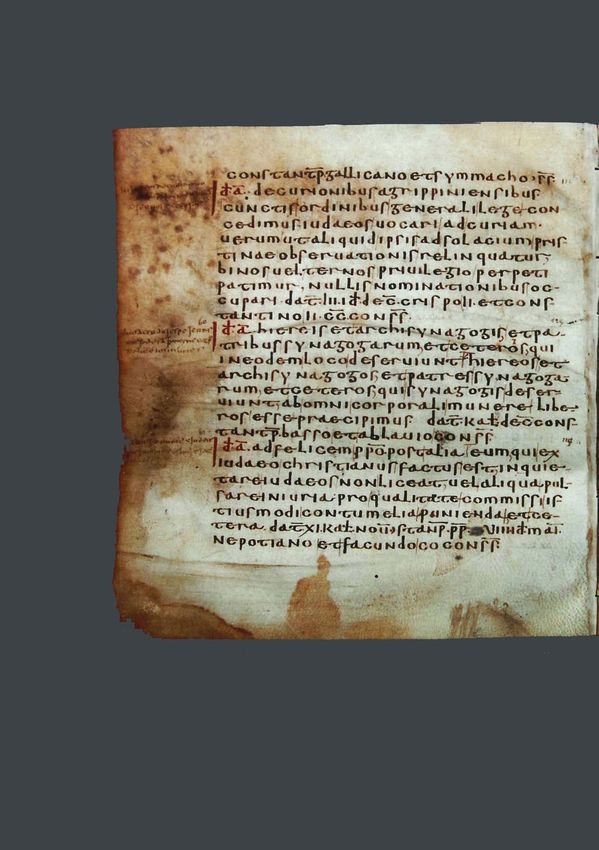 constantp̄ gallicano et symmacho · s̄s̄
id̄ · ā · decurionibus agrippiniensibus
cunctis ordinibus generali lege con
cedimus iudaeos uocari ad curiam ·
uerum ut aliquid ipsis ad solacium pris
tinae obseruationis relinquatur
binos uel ternos priuilegio perpeti
patimur , nullis nominationibus oc
cupari · dat̄ · iii · id̄ dec̄ · crispo ii · et cons
tantino ii · c̄c̄ cons̄s̄ ·
id̄ · ā · hiereis et archisynagogis et pa
tribus synagogarum et ceteros qui
in eodem loco deseruiunt hiereos et
archisynagogos et patres synagoga
rum , et ceteros qui synagogis deser
uiunt ab omni corporali munere libe
ros esse praecipimus dat̄ · kal̄ dec̄ cons
tantp̄ · basso et ablauio cons̄s̄
id̄ · ā · ad felicem p̄p̄o post alia · eum qui ex
iudaeo christianus factus est , inquie
tare iudaeos non liceat , uel aliqua pul
sare iniuria · pro qualitate commissi is
tiusmodi contumelia punienda et ce
tera · dat̄ xi · kal̄ nou̅ constanp̄ · p̄p̄ · uiii id̄ mai̅
nepotiano et facundo conss̄